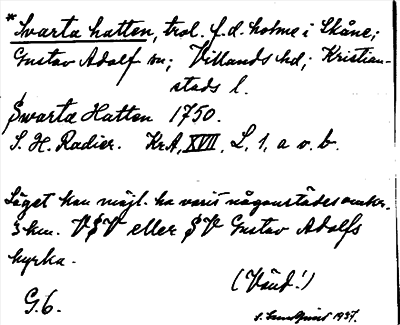 *Svarta hatten, trol. f.d. holme i Skåne;
Gustav Adolf sn; Villands hd; Kristian-
stads l.
Swarta Hatten 1750.
S. H. Radier. KrA, XVII, L, 1, a o. b.
Läget kan möjl. ha varit någonstädes omkr.
3 km. VSV eller SV Gustav Adolfs
kyrka.
(Vänd!)
G. 6.
1937.